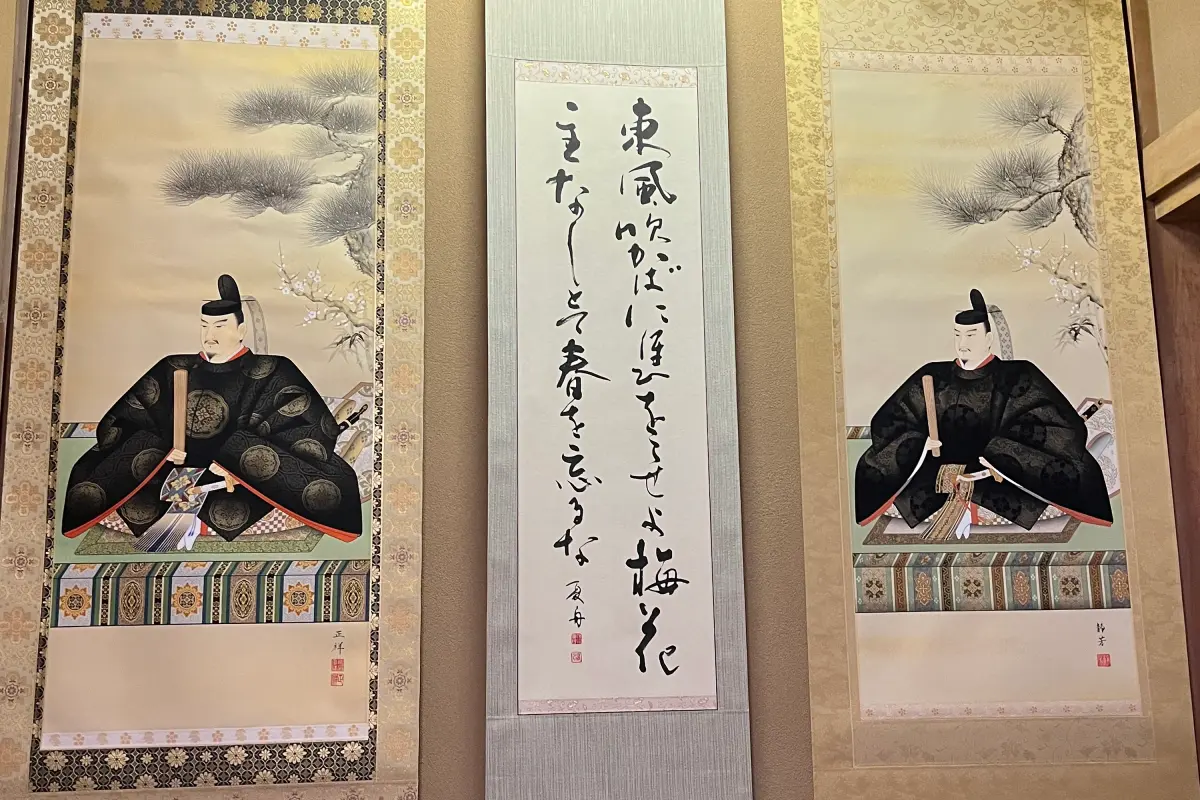 東風吹かばにほひをこせよ梅花
主なしとて春を忘るな
夏舟
正祥